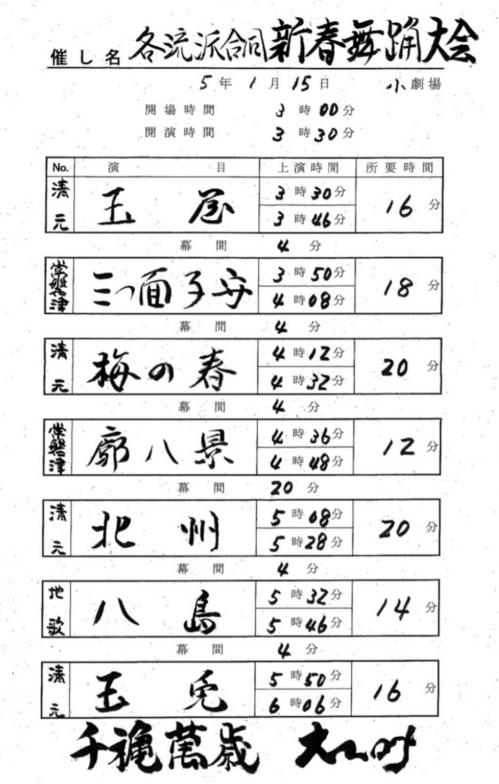 催し名 各流派合同新春舞踊大会
5年1月15日 小劇場
開場時間 3時00分
開演時間 3時30分
No. 演目 上演時間 所要時間
清元 玉屋 3時30分 16分
3時46分
幕間 4分
常磐津 三つ面子守 3時50分 18分
4時08分
幕間 4分
清元 梅の春 4時12分 20分
4時32分
幕間 4分
常磐津 廓八景 4時36分 12分
4時48分
幕間 20分
清元 北州 5時08分 20分
5時28分
幕間 4分
地歌 八島 5時32分 14分
5時46分
幕間 4分
清元 玉兎 5時50分 16分
6時06分
千穐萬歳 大叶